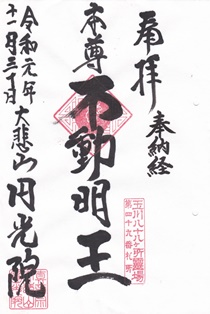 奉拝
奉納経
本尊
不動明王
玉川八十八ケ所霊場
第四十九番札所
令和元年
十一月三十日
大悲山円光院